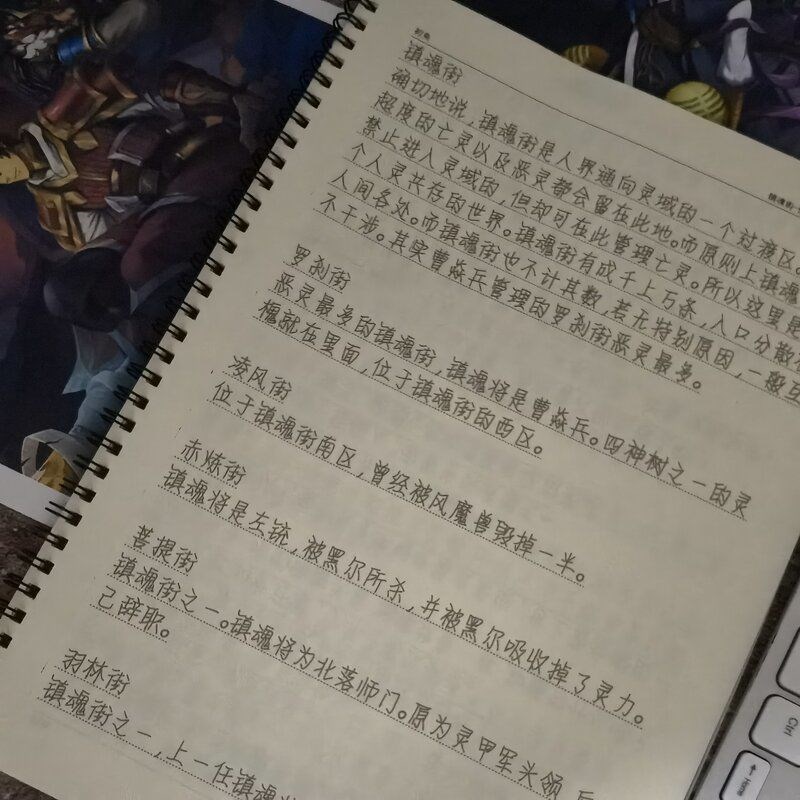 初衷
镇魂街
镇魂街
确切地说,镇魂街是人界通向灵域的一个过渡区。
超度的亡灵以及恶灵都会留在此地。而原则上镇魂
禁止进入灵域的,但却可在此管理亡灵。所以这里是
个人灵共存的世界。镇魂街有成千上万条,入口分散
人间各处。而镇魂街也不计其数,若无特别原因,一般互
不干涉。其实曹焱兵管理的罗刹街恶灵最多。
罗刹街
恶灵最多的镇魂街,镇魂将是曹焱兵。四神树之一的灵
槐就在里面,位于镇魂街的西区。
凌风街
位于镇魂街南区,曾经被风魔兽毁掉一半。
赤炼街
镇魂将是左铳,被黑尔所杀,并被黑尔吸收掉了灵力。
菩提街
镇魂街之一。镇魂将为北落师门。原为灵甲军头领,后
己辞职。
羽林街
镇魂街之一,上一任镇魂将
Ctrl
Home